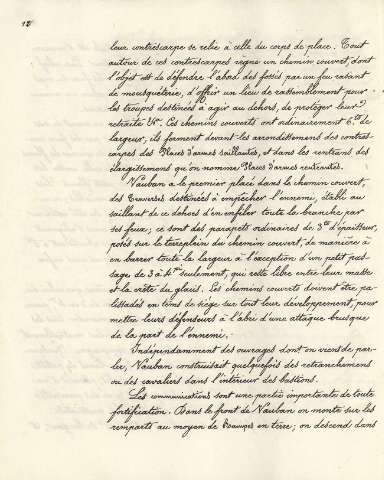 12
leur contrescarpe se relie à celle du corps de place. Tout
autour de ces contrescarpes règne un chemin couvert, dont
l'objet est de défendre l'abord des fossés par un feu rasant
de mousquéterie, d'offrir un lieu de rassemblement pour
les troupes destinées à agir au dehors, de protéger leur
retraite &ª. Ces chemins couverts ont ordinairement 6.ts de
largeur, ils forment devant les arrondissements des contres-
carpes des Places d'armes saillantes, et dans les rentrans des
élargissements qu'on nomme Places d'armes rentrantes.
Vauban a le premier placé dans le chemin couvert,
des Traverses destinées à empêcher l'ennemi, établi au
saillant de ce dehors d'en enfiler toute la branche par
ses feux; ce sont des parapets ordinaires de 3ts d'épaisseur,
posés sur le terreplein du chemin couvert, de manière à
en barrer toute la largeur à l'exception d'un petit pas-
sage de 3 à 4 seulement, qui reste libre entre leur masse
et la crête du glacis. Les chemins couverts doivent être pa-
lissadés en tems de siège sur tout leur développement, pour
mettre leurs défenseurs à l'abri d'une attaque brusque
de la part de l'ennemi.-
Indépendamment des ouvrages dont on vient de par-
ler, Vauban construisait quelquefois des retranchemens
ou des cavaliers dans l'intérieur des bastions.
Les communications sont une partie importante de toute
fortification. Dans le front de Vauban on monte sur les
remparts au moyen de Rampes en terre; on descend dans